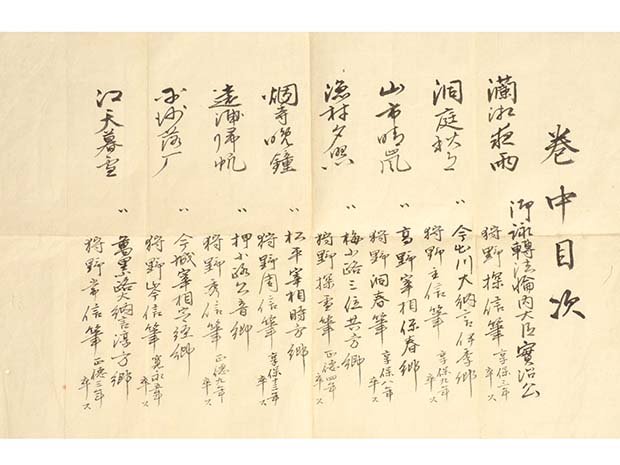 卷中目次
瀟湘夜雨
御詠轉法輪内大臣實治公
狩野探信筆 享保三年卒ス
洞庭秋月
〃 今出川大納言伊季卿
狩野主信筆 享保九年卒ス
山市晴嵐
〃 高野宰相保春卿
狩野洞春筆 享保八年卒ス
漁村夕照
〃 梅小路三位共方卿
狩野探雪筆 正徳四年卒ス
烟寺晩鐘
〃 松平宰相時方卿
狩野周信筆 享保十三年卒ス
遠浦帰帆
〃 押小路公音卿
狩野秀信筆 正徳九年卒ス
平沙落厂
〃 今城宰相定経卿
狩野岑信筆 寛永五年卒ス
江天暮雪
〃 大納言淳方卿
狩野常信筆 正徳三年卒ス